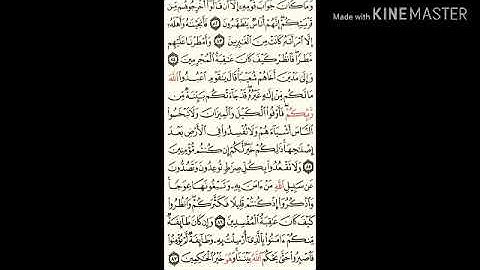 Made with KINEMASTER
وَمَا كَانَ جَوَابَ قَوْمِهِ إِلَّا أَن قَالُوا أَخْرِجُوهُم مِّن
قَرْيَتِكُمْ إِنَّهُمْ أُنَاسٌ يَتَطَهَّرُونَ ۝٨٢ فَأَنجَيْنَاهُ وَأَهْلَهُ
إِلَّا امْرَأَتَهُ كَانَتْ مِنَ الْغَابِرِينَ ۝٨٣ وَأَمْطَرْنَا عَلَيْهِم
مَّطَرًا فَانظُرْ كَيْفَ كَانَ عَاقِبَةُ الْمُجْرِمِينَ ۝٨٤
وَإِلَىٰ مَدْيَنَ أَخَاهُمْ شُعَيْبًا قَالَ يَا قَوْمِ اعْبُدُوا اللَّهَ
مَا لَكُم مِّنْ إِلَٰهٍ غَيْرُهُ قَدْ جَاءَتْكُم بَيِّنَةٌ مِّن
رَّبِّكُمْ فَأَوْفُوا الْكَيْلَ وَالْمِيزَانَ وَلَا تَبْخَسُوا
النَّاسَ أَشْيَاءَهُمْ وَلَا تُفْسِدُوا فِي الْأَرْضِ بَعْدَ
إِصْلَاحِهَا ذَٰلِكُمْ خَيْرٌ لَّكُمْ إِن كُنتُم مُّؤْمِنِينَ
۝٨٥ وَلَا تَقْعُدُوا بِكُلِّ صِرَاطٍ تُوعِدُونَ وَتَصُدُّونَ
عَن سَبِيلِ اللَّهِ مَنْ آمَنَ بِهِ وَتَبْغُونَهَا عِوَجًا
وَاذْكُرُوا إِذْ كُنتُمْ قَلِيلًا فَكَثَّرَكُمْ وَانظُرُوا
كَيْفَ كَانَ عَاقِبَةُ الْمُفْسِدِينَ ۝٨٦ وَإِن كَانَ طَائِفَةٌ
مِّنكُمْ آمَنُوا بِالَّذِي أُرْسِلْتُ بِهِ وَطَائِفَةٌ لَّمْ يُؤْمِنُوا
فَاصْبِرُوا حَتَّىٰ يَحْكُمَ اللَّهُ بَيْنَنَا وَهُوَ خَيْرُ الْحَاكِمِينَ ۝٨٧